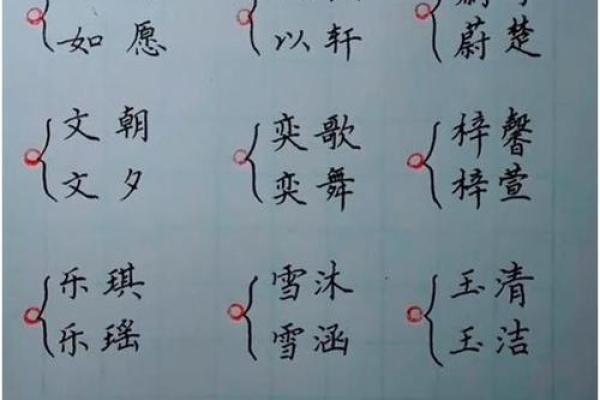 如愿
以轩
蔚楚
文朝
文夕
奕歌
奕舞
梓馨
梓萱
乐琪
乐瑶
雪沐
雪涵
玉清
玉洁